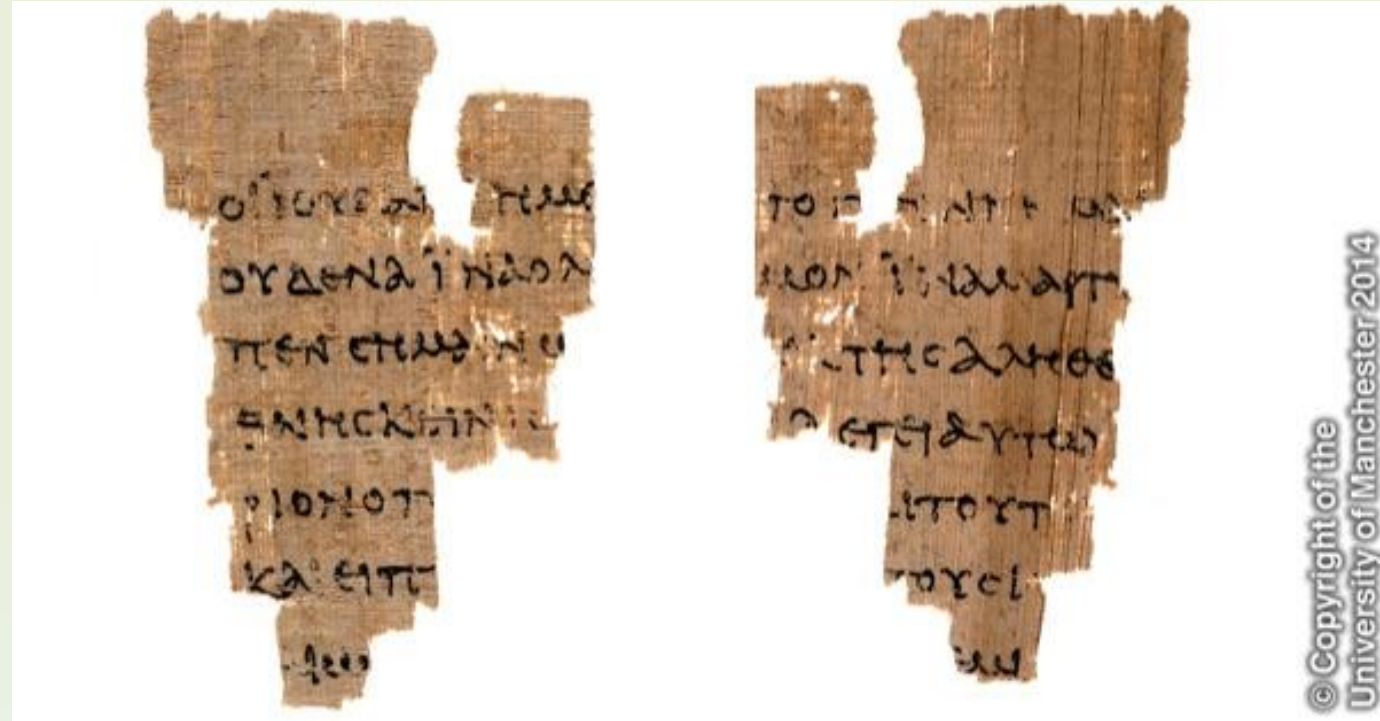 ΟΙ ΙΟΥΔΑΙ ΗΜΕ
ΟΥΔΕΝΑ ΪΝΑ Ο Λ
ΠΕΝ ϹΗΜΑΙΝΩ
ΘΝΗϹΚΕΙΝ
ΡΙΟΝ Ο Π
ΚΑΙ ΕΙΠ
ΑΙΩ
ΤΟ
ΜΟΝ ΪΝΑ ΜΑΡΤΥ
ΤΗϹ ΑΛΗΘΕ
ΛΕΓΕΙ ΑΥΤΩ
ΑΙ ΤΟΥΤ
ΤΟΥϹ Ι
ΕΜΙ
© Copyright of the
University of Manchester 2014